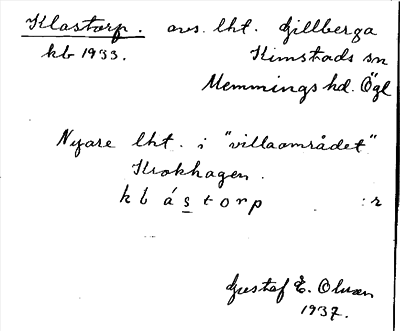 Klastorp. avs. lht. Gillberga
kb 1933. Kimstads sn
Memmings hd. Ögl
Nyare lht. i "villaområdet"
Krokhagen.
k b á s t o r p :r
Gustaf E. Olvan
1937.